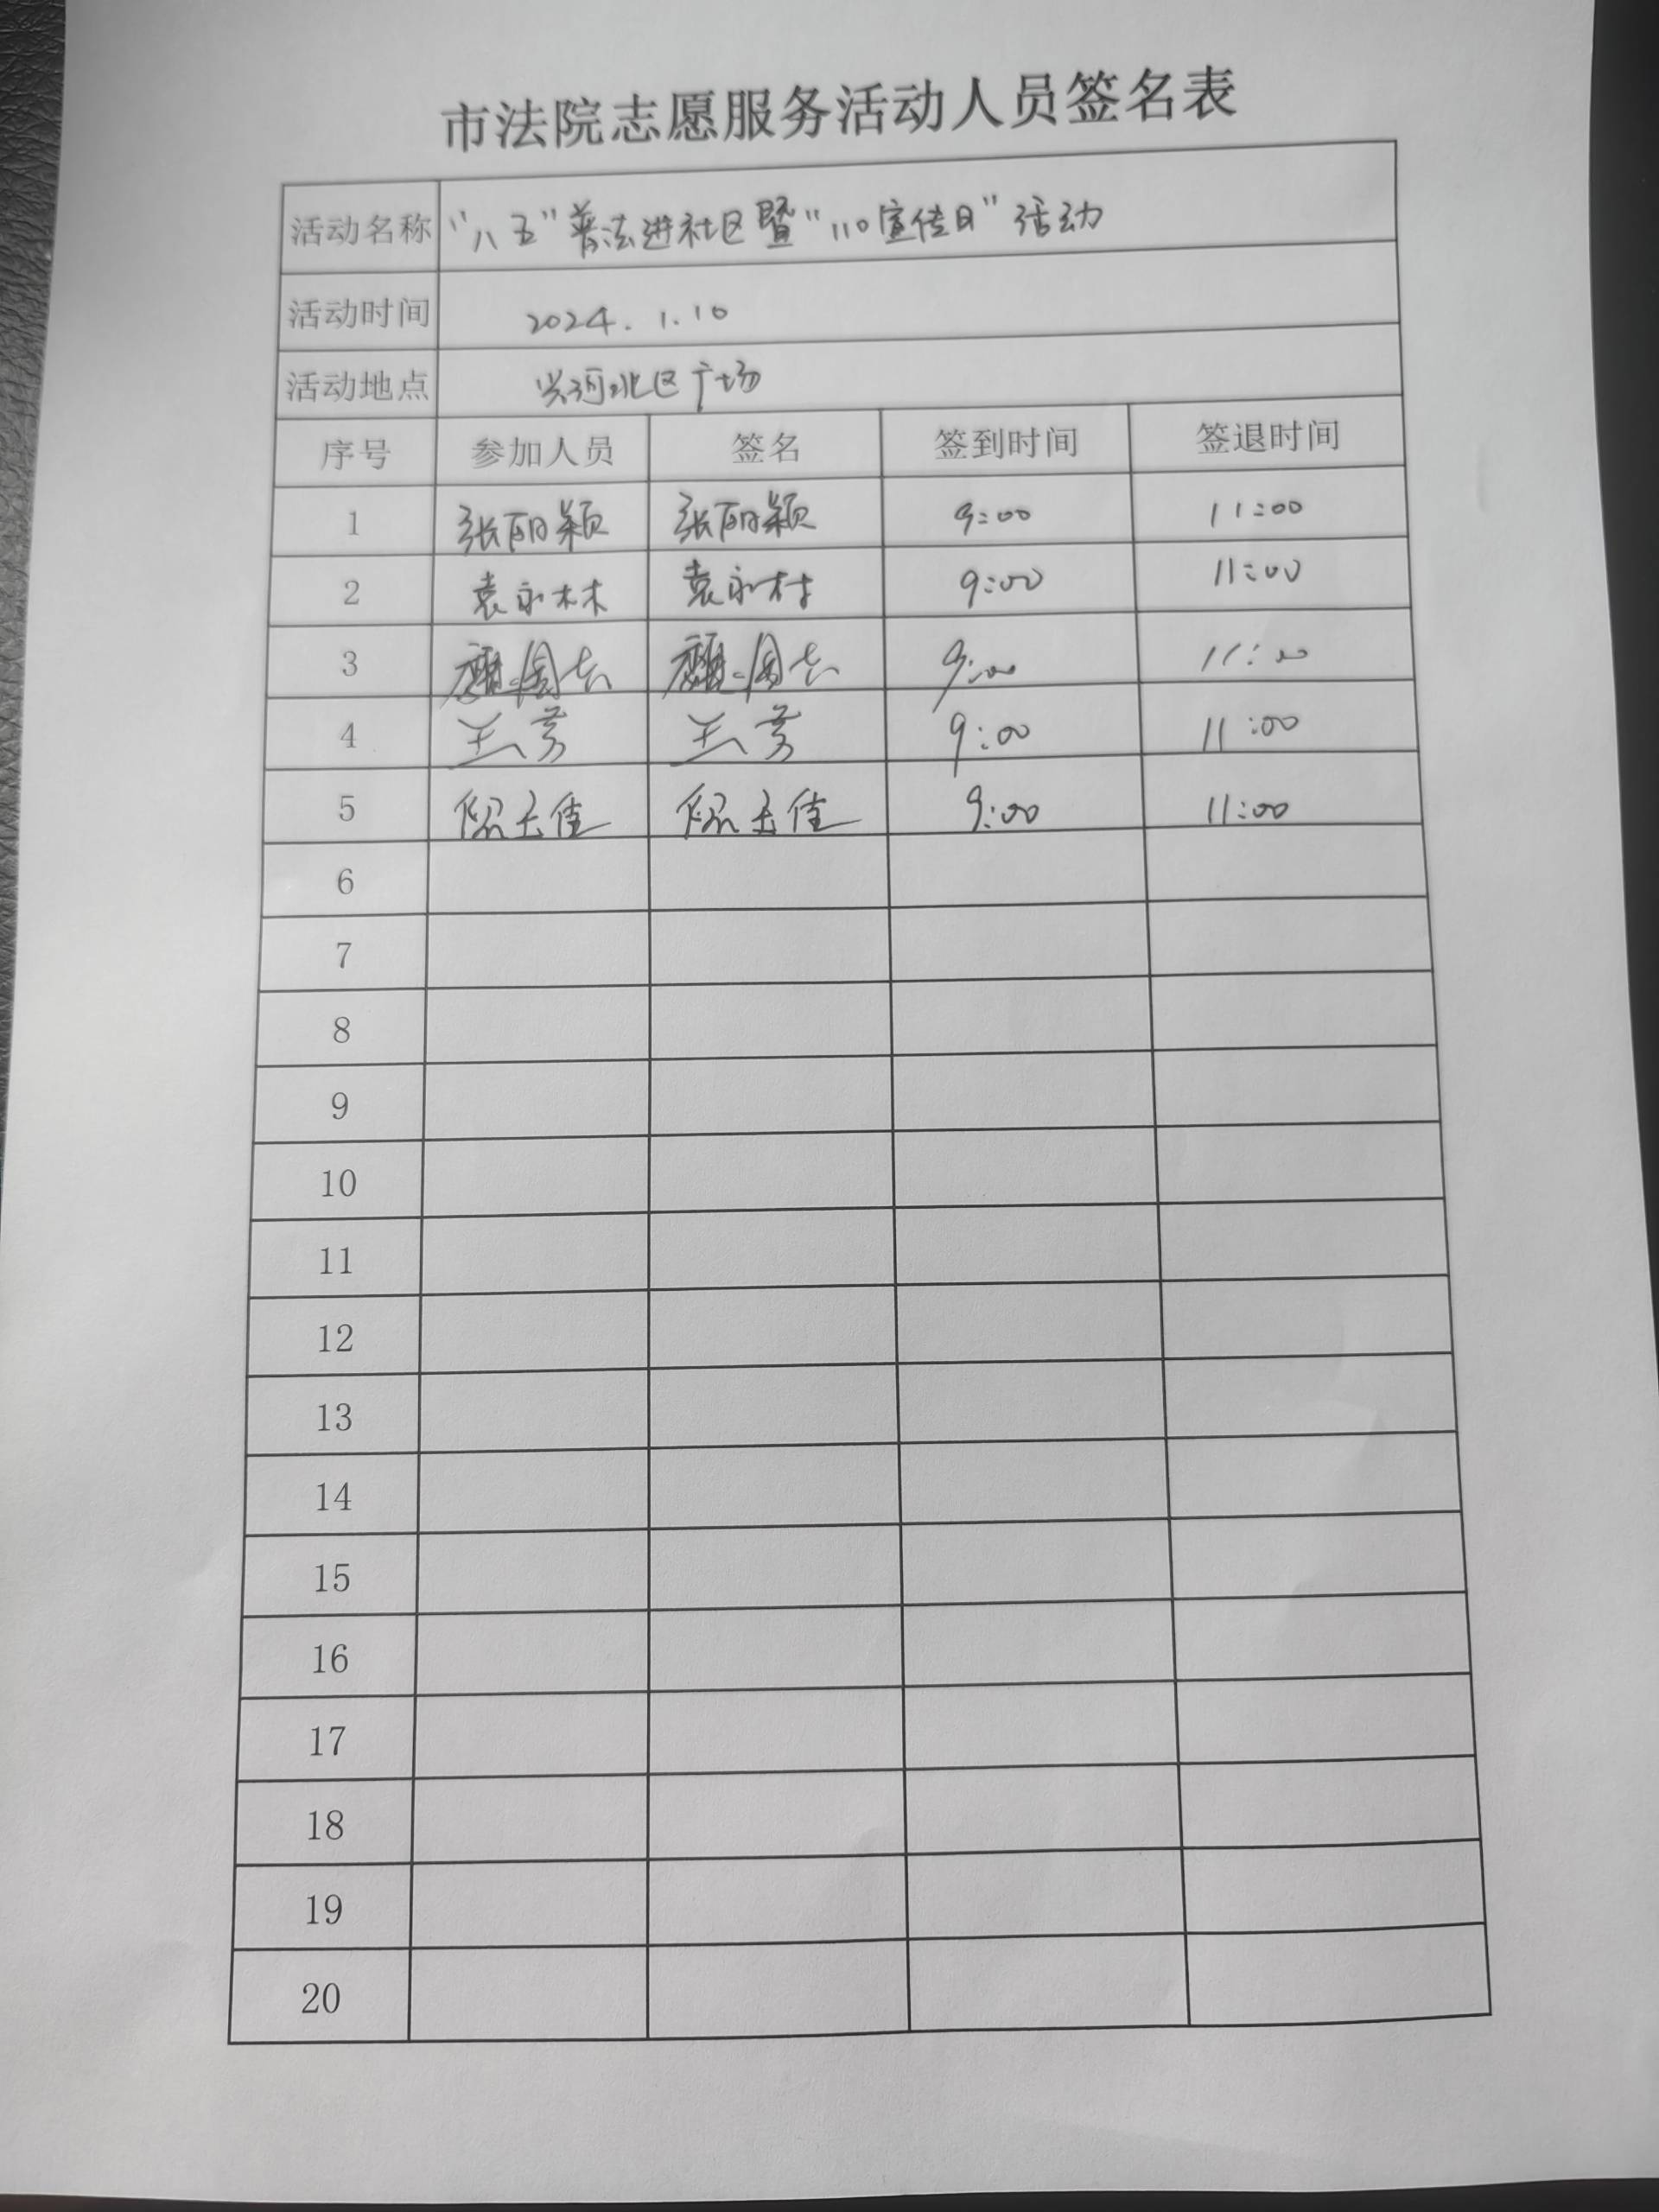 市法院志愿服务活动人员签名表
活动名称 “八五”普法进社区暨“110宣传日”活动
活动时间 2024.1.10
活动地点 兴河北区广场
序号 参加人员 签名 签到时间 签退时间
1 张丽颖 张丽颖 9:00 11:00
2 袁永林 袁永林 9:00 11:00
3 9:00 11:00
4 王芳 王芳 9:00 11:00
5 9:00 11:00
6
7
8
9
10
11
12
13
14
15
16
17
18
19
20